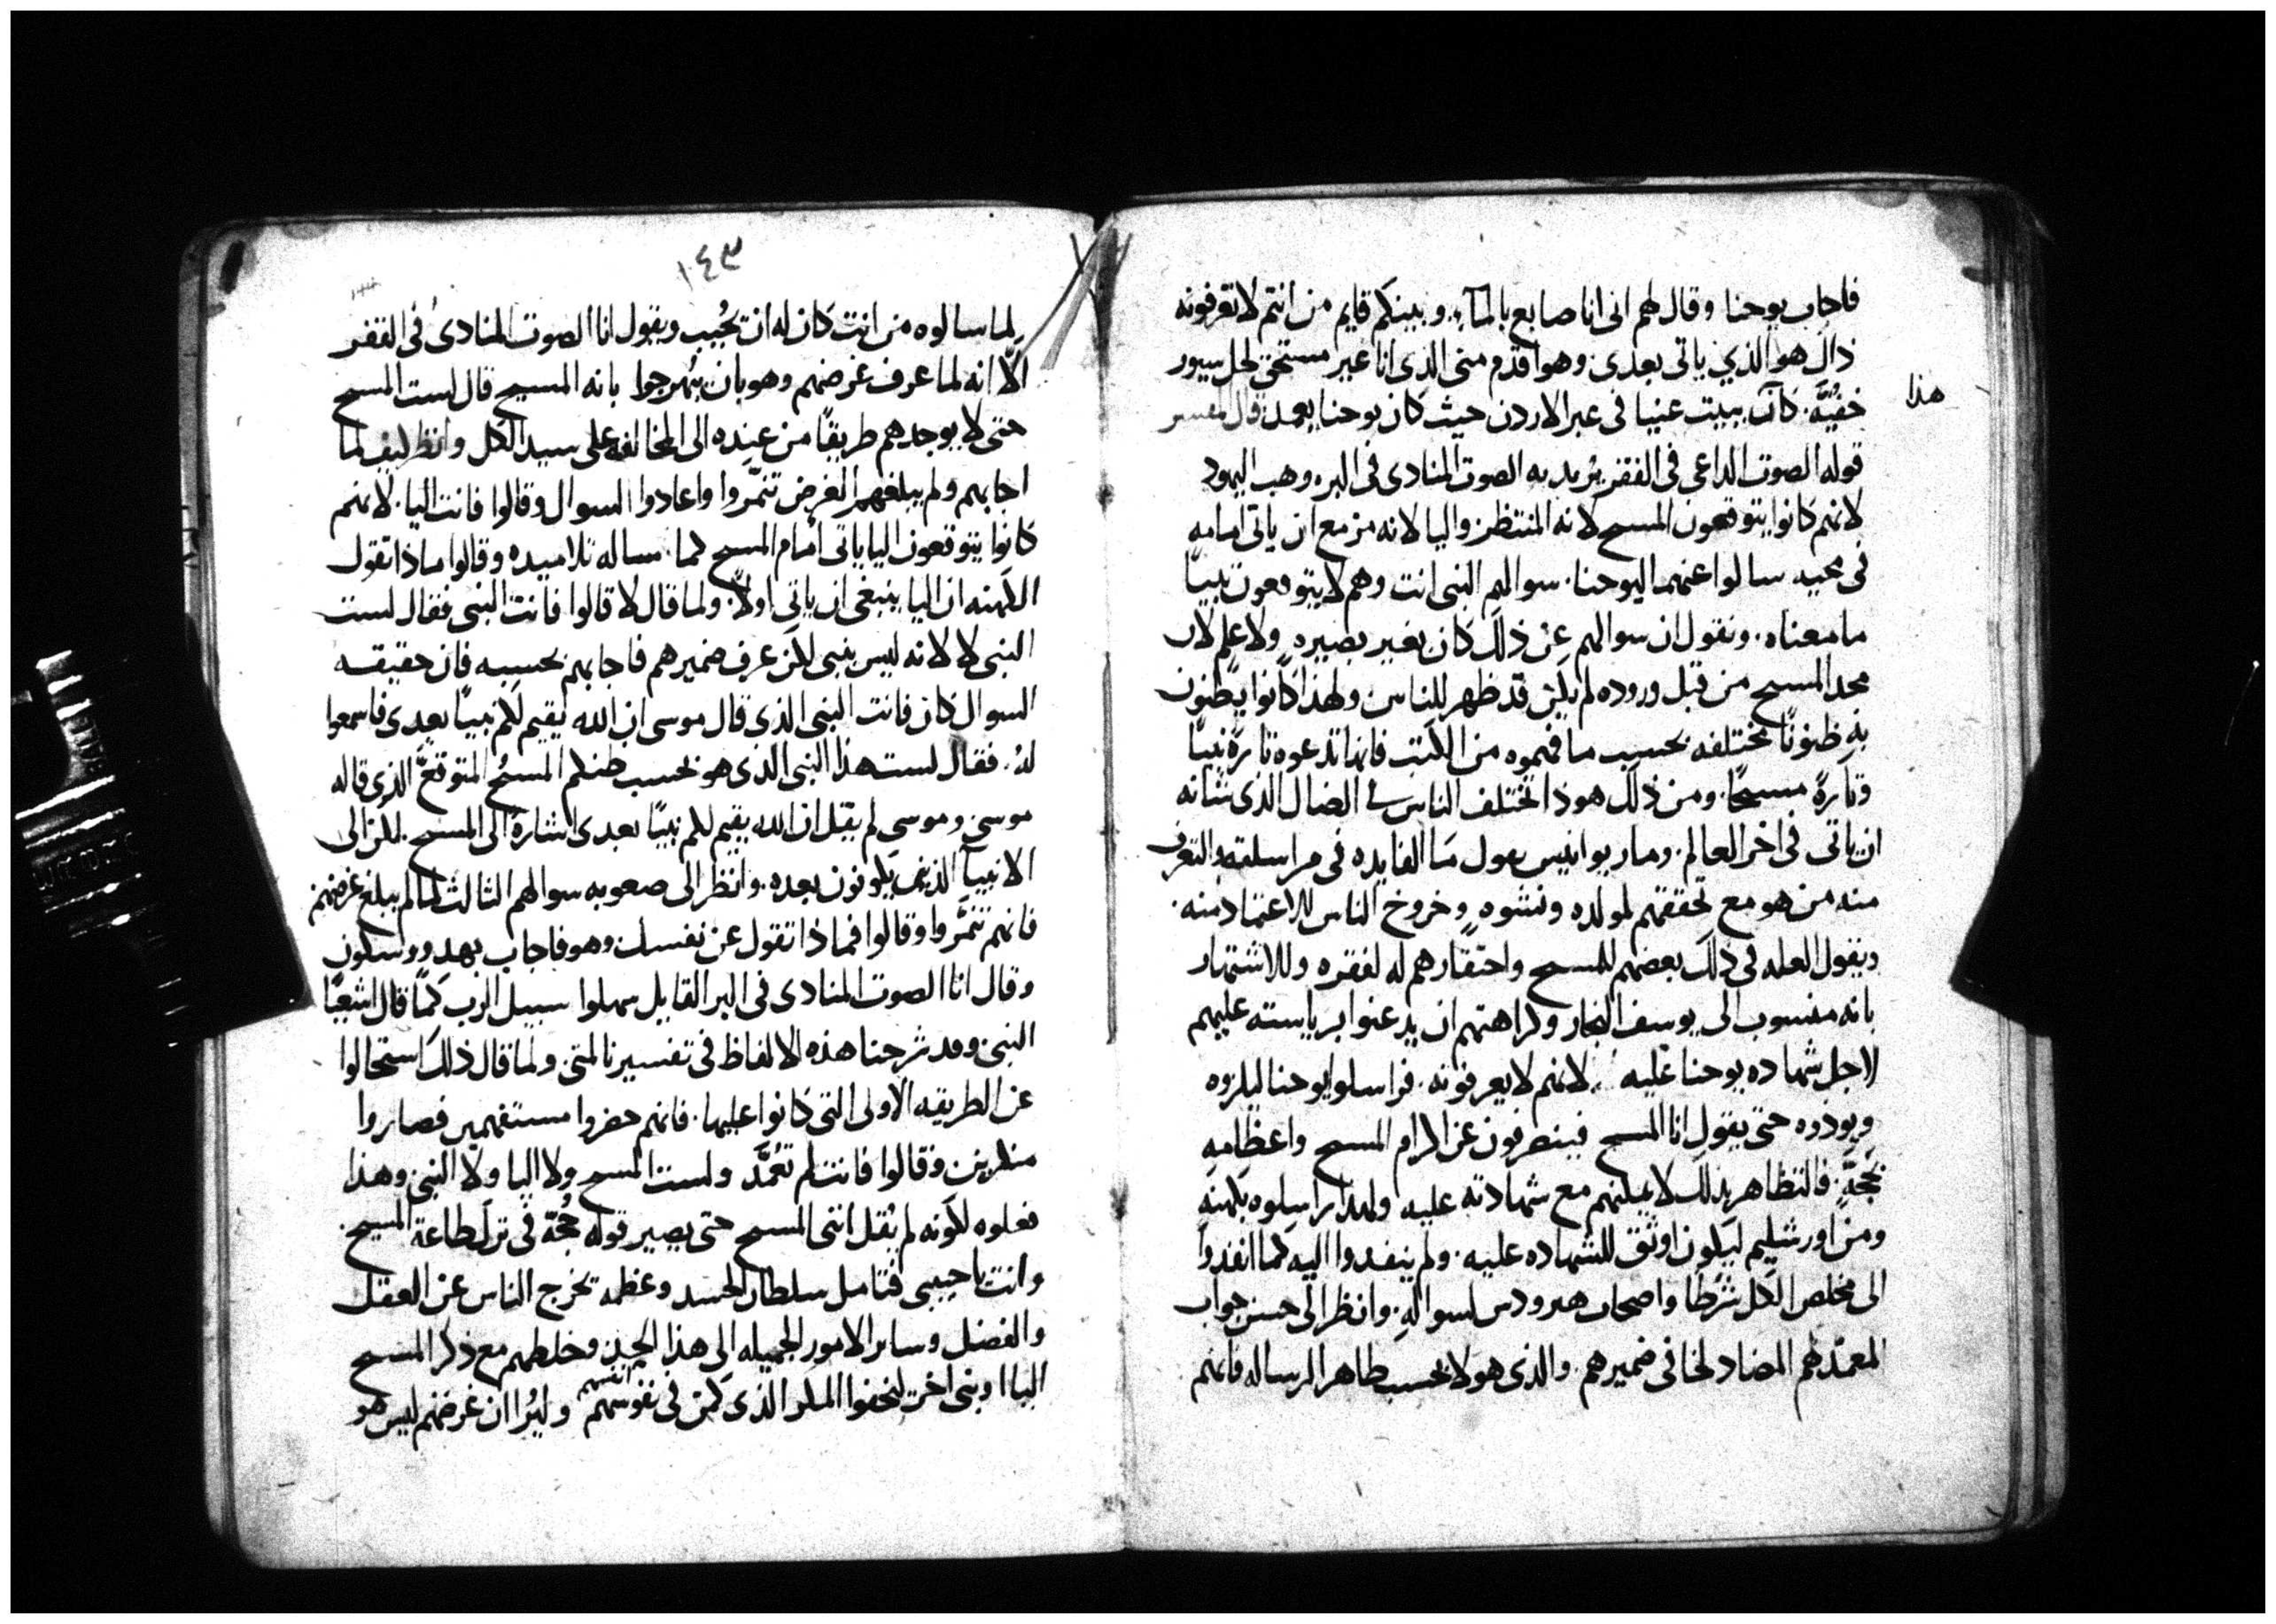 فاجاب يوحنا وقال لهم انى انا صابغ بالمآء. وبينكم قايم من انتم لا تعرفونه
ذاك هو الذي ياتى بعدى وهو اقدم منى الذى انا غير مستحق لحل سيور
هذا
خفيّه. كان ببيت عنيا فى عبر الاردن حيث كان يوحنا يعمد قال المفسر
قوله الصوت الداعى فى القفر يريد به الصوت المنادى فى البر وهب اليهود
لانهم كانوا يتوقعون المسيح لانه المنتظر واليا لانه مزمع ان ياتى امامه
فى مجيه سالوا عنهما ليوحنا. سوالهم النبى انت وهم لا يتوقعون نبيًا
ما معناه. ونقول ان سوالهم عن ذلك كان بغير بصيره ولا علم لان
مجد المسيح من قبل وروده لم يكن قد ظهر للناس ولهذا كانوا يظنون
به ظنونًا مختلفه بحسب ما فهموه من الكتب فانها تدعوه تارةً نبيًا
وتارةً مسيحًا. ومن ذلك هوذا تختلف الناس في الضال الذى شانه
ان ياتى فى اخر العالم. ومار يوانيس يقول ما الفايده فى مراسلته والتعرف
منه من هو مع تحققهم لمولده ونشوه وخروخ الناس للاعتماد منه.
ويقول العله فى ذلك بغضهم للمسيح واحتقارهم له لفقره وللاشتهار
بانه منسوب الى يوسف النجار وكراهتهم ان يذعنوا برياسته عليهم
لاجل شهاده يوحنا عليه لانهم لا يعرفونه. فراسلوا يوحنا ليكروه
ويوددوه حتى يقول انا المسيح فينصرفون عن اكرام المسيح واعظامه
بحجةٍ. فالتظاهر بذلك لا يمكنهم مع شهادته عليه ولهذا راسلوه بكهنه
ومن اورشليم ليكون اوثق للشهاده عليه. ولم ينفدوا اليه كما انفدوا
الى مخلص الكل شرطًا واصحاب هيرودس لسواله. وانظر الى حسن جواب
المعمد لهم المضاد لخافى ضميرهم. والذى هو لا بحسب ظاهر الرساله فانهم
١٤٣
لما سالوه من انت كان له ان يجُيب ويقول انا الصوت المنادى فى القفر
الّا انه لما عرف غرضهم وهو بان يبُهرجوا بانه المسيح قال لست المسيح
حتى لا يوجدهم طريقًا من عنده الى المخالفه على سيد الكل وانظر كيف لما
اجابهم ولم يبلغهم الغرض تنمّروا واعادوا السوال وقالوا فانت اليا. لانهم
كانوا يتوقعون اليا ياتى أمام المسيح كما. ساله تلاميده وقالوا ماذا تقول
الكهنه ان اليا ينبغى ان ياتى اولًا. ولما قال لا قالوا فانت النبى فقال لست
النبى لا لانه ليس بنبى لكن عرف ضميرهم فاجابهم بحسبه فان حقيقه
السوال كان فانت النبى الذى قال موسى ان الله يقيم لكم نبيًا بعدى فاسمعوا
لهُ. فقال لست هذا النبى الذى هو بحسب ظنكم المسيح المتوقعّ الذى قاله
موسى وموسى لم يقل ان الله يقيم لكم نبيًا بعدى اشارة الى المسيح. لكن الى
الانبيآ الذين يكونون بعده. وانظر الى صعوبه سوالهم الثالث لما لم يبلغ غرضهم
فانهم تنمَّروا وقالوا فماذا تقول عن نفسك وهو فاجاب بهدوو وسكون
وقال انا الصوت المنادى فى البر القايل سهلوا سبيل الرب كما قال اشعيا
النبى وقد شرحنا هذه الالفاظ فى تفسيرنا لمتى. ولما قال ذلك استحالوا
عن الطريقه الاولى التى كانوا عليها. فانهم حضروا مستفهمين فصاروا
منكرين وقالوا فانت لم تعُمَّد ولست المسيح ولا اليا ولا النبى وهذا
فعلوه لكونه لم يقل اننى المسيح حتى يصير قوله حُجة فى ترك طاعة المسيح.
وانت يا حبيبى فتامل سلطان الحسد وعظمه تخرج الناس عن العقل
والفضل وساير الامور الجميله الى هذا الحين وخلطهم مع ذكر المسيح
انفسهم
اليا او نبى اخر ليخفوا المكر الذى كمن فى نفوسهم وليُرا ان غرضهم ليس هو